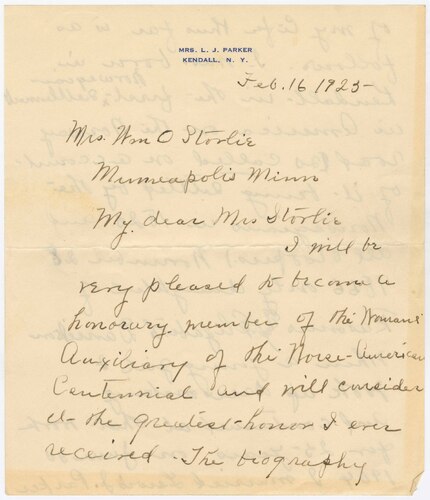 MRS. L. J. PARKER
KENDALL, N. Y.
Feb. 16 1925
Mrs. Wm O Storlie
Minneapolis Minn
My dear Mrs Storlie
I will be
very pleased to become a
honorary member of the Woman's
Auxiliary of the Norse-American
Centennial and will consider
it the greatest honor I ever
received. The biography